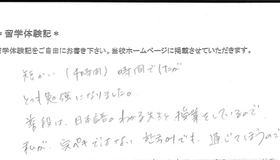 ＊留学体験記＊
留学体験記をご自由にお書き下さい。当校ホームページに掲載させていただきます。
短かい（4時間）時間でしたが
とても勉強になりました。
普段は、日本語のわかる先生と授業をしているので、
私が、完ペキではない 韓国語でも、通じてしまうので